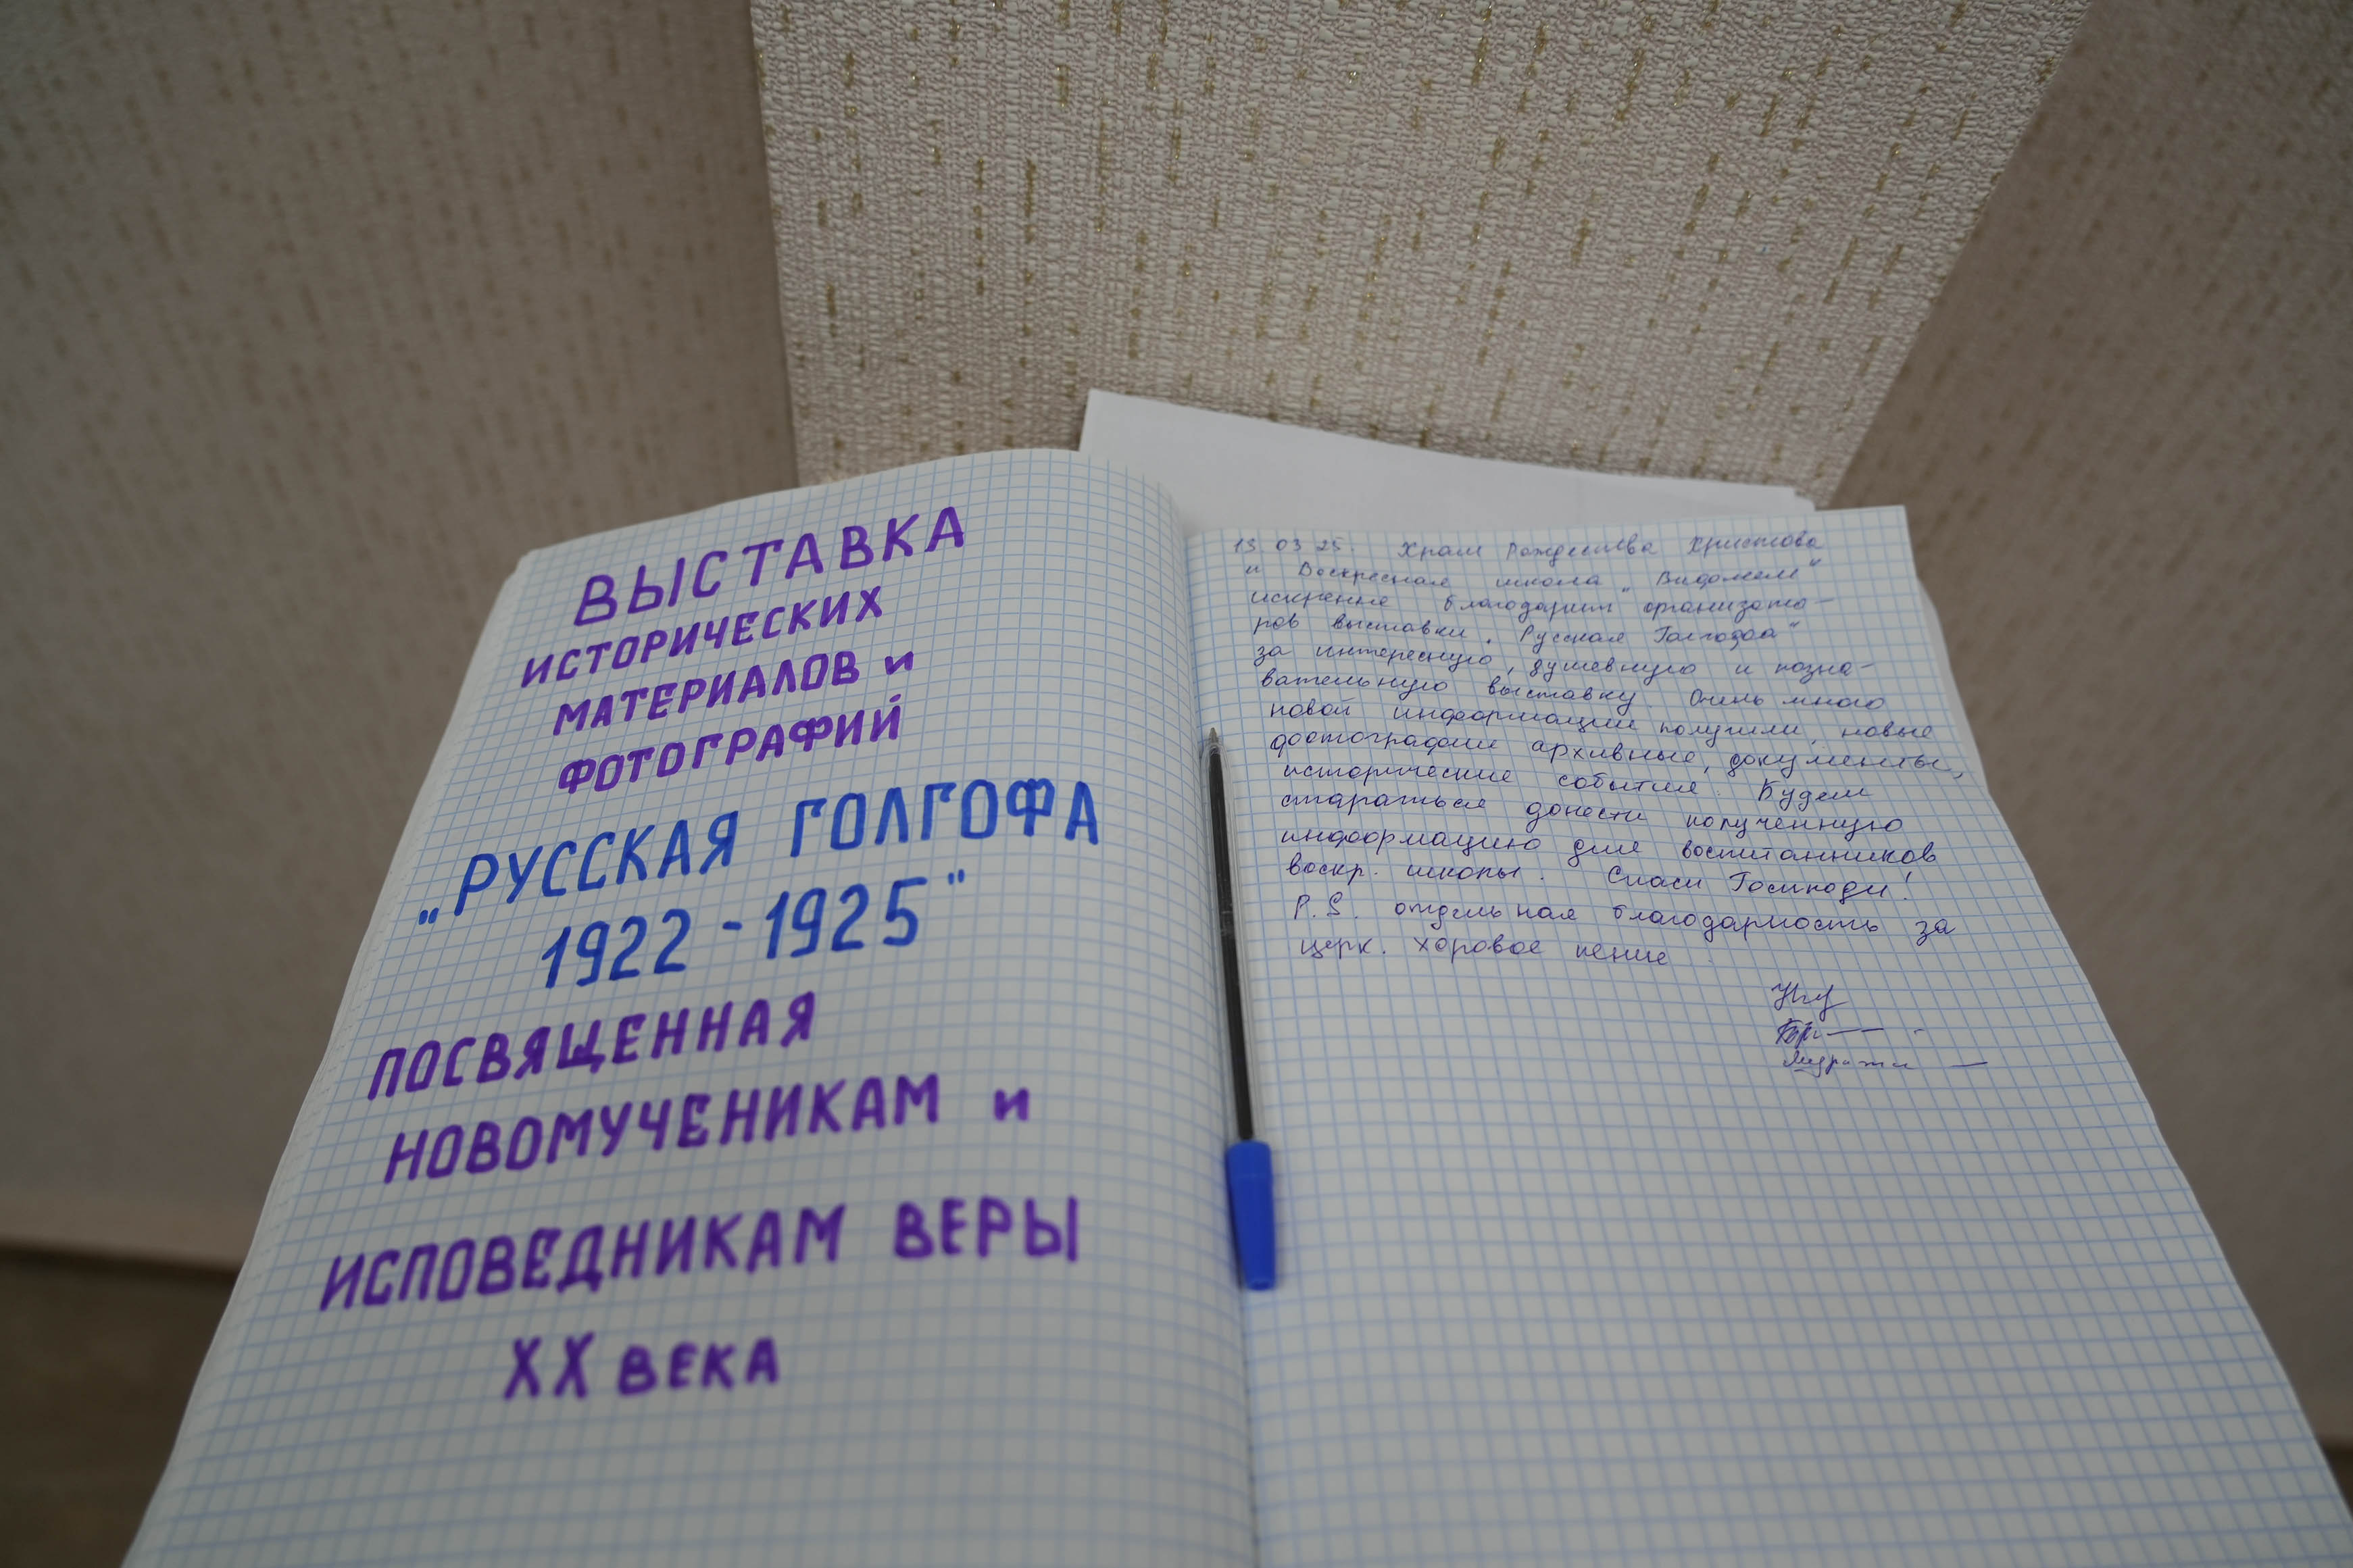 ВЫСТАВКА
ИСТОРИЧЕСКИХ
МАТЕРИАЛОВ и
ФОТОГРАФИЙ
„РУССКАЯ ГОЛГОФА
1922 - 1925"
ПОСВЯЩЕННАЯ
НОВОМУЧЕНИКАМ и
ИСПОВЕДНИКАМ ВЕРЫ
XX ВЕКА
03 25. Храм Рождества Христова
и Воскресная школа
искренне благодарит организато-
ров выставки „Русская Голгофа"
за интересную, душевную и позна-
вательную выставку. Очень много
новой информации получили, новые
фотографии архивные, документы,
исторические события. Будем
стараться донести полученную
информацию для воспитанников
воскр. школы. Спаси Господи!
P.S. отдельная благодарность за
церк. хоровое пение